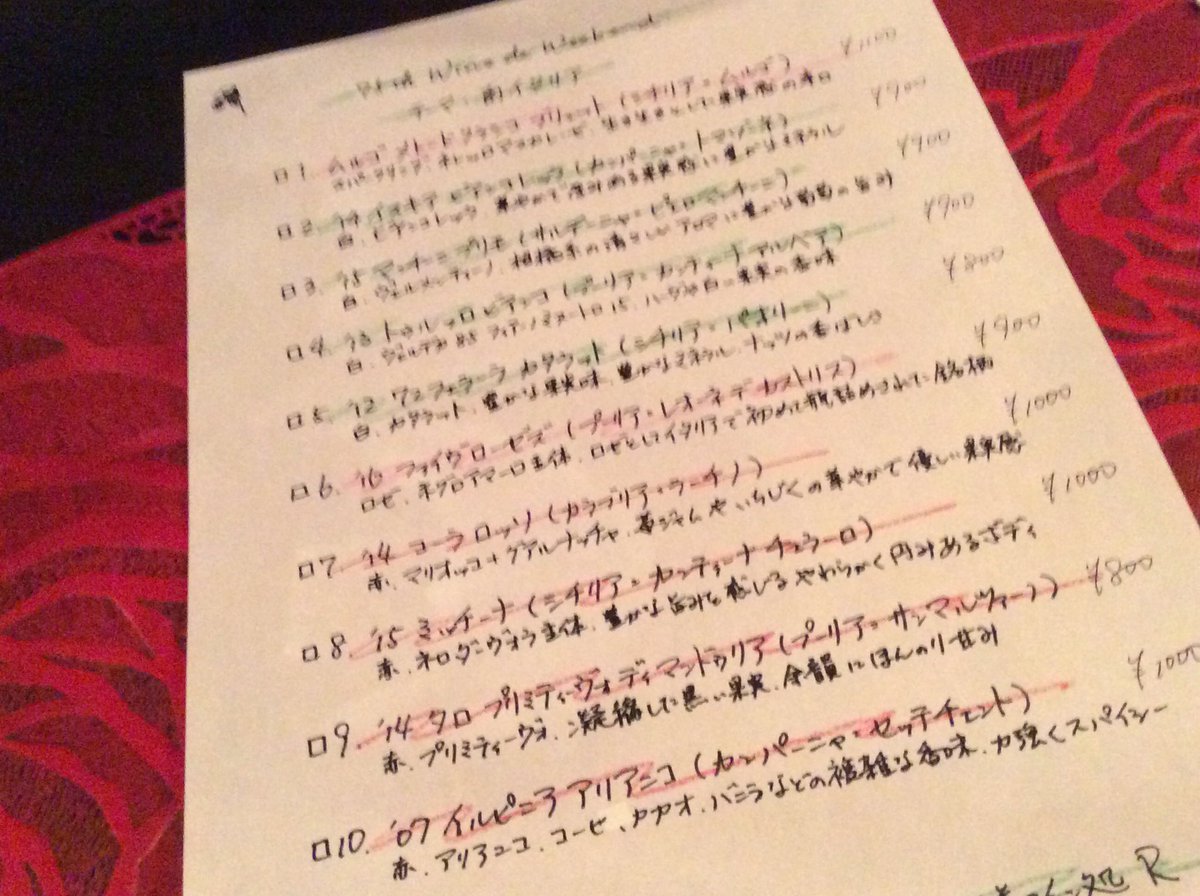 Wine de Weekend
テーマ：南イタリア
□1. ムルゴ ブリュット（シチリア・ムルゴ） ¥1100
スパークリング、ネレッロマスカレーゼ、生き生きとした果実感の辛口
□2. '14 イスキア ビアンコレッラ（カンパーニャ・トマゾーネ） ¥900
白、ビアンコレッラ、華やかで厚みある果実感に豊かなミネラル
□3. '15 （サルデーニャ・ピエロマンチーニ） ¥900
白、ヴェルメンティーノ、柑橘系の清々しいアロマに豊かな葡萄の旨み
□4. '13 トゥルッロ ビアンコ（プーリア・カンティーナアルベア） ¥900
白、ヴェルデカ85 フィアーノミヌートロ15、ハーブや白い果実の香味
□5. '12 カタラット（シチリア・パオリーニ） ¥800
白、カタラット、豊かな果実味、豊かなミネラル、ナッツの香ばしさ
□6. '16 ファイヴローゼズ（プーリア・レオーネデカストリス） ¥900
ロゼ、ネグロアマーロ主体、ロゼとしてイタリアで初めて瓶詰めされた銘柄
□7. '14 コーラロッソ（カラブリア・ラーチノ） ¥1000
赤、マリオッコ＋グアルナッチャ、華やかで優しい果実感
□8. '15 ミッチーナ（シチリア・カンティーナチェラーロ） ¥1000
赤、ネロダーヴォラ主体、豊かな旨みを感じるやわらかく円みあるボディ
□9. '14 タロ プリミティーヴォ ディ マンドゥリア（プーリア・サンマルツァーノ） ¥800
赤、プリミティーヴォ、凝縮した黒い果実、余韻にほんのり甘み
□10. '07 イルピニア アリアニコ（カンパーニャ・セッテチェント） ¥1000
赤、アリアニコ、コーヒー、カカオ、バニラなどの複雑な香味、力強くスパイシー
処 R